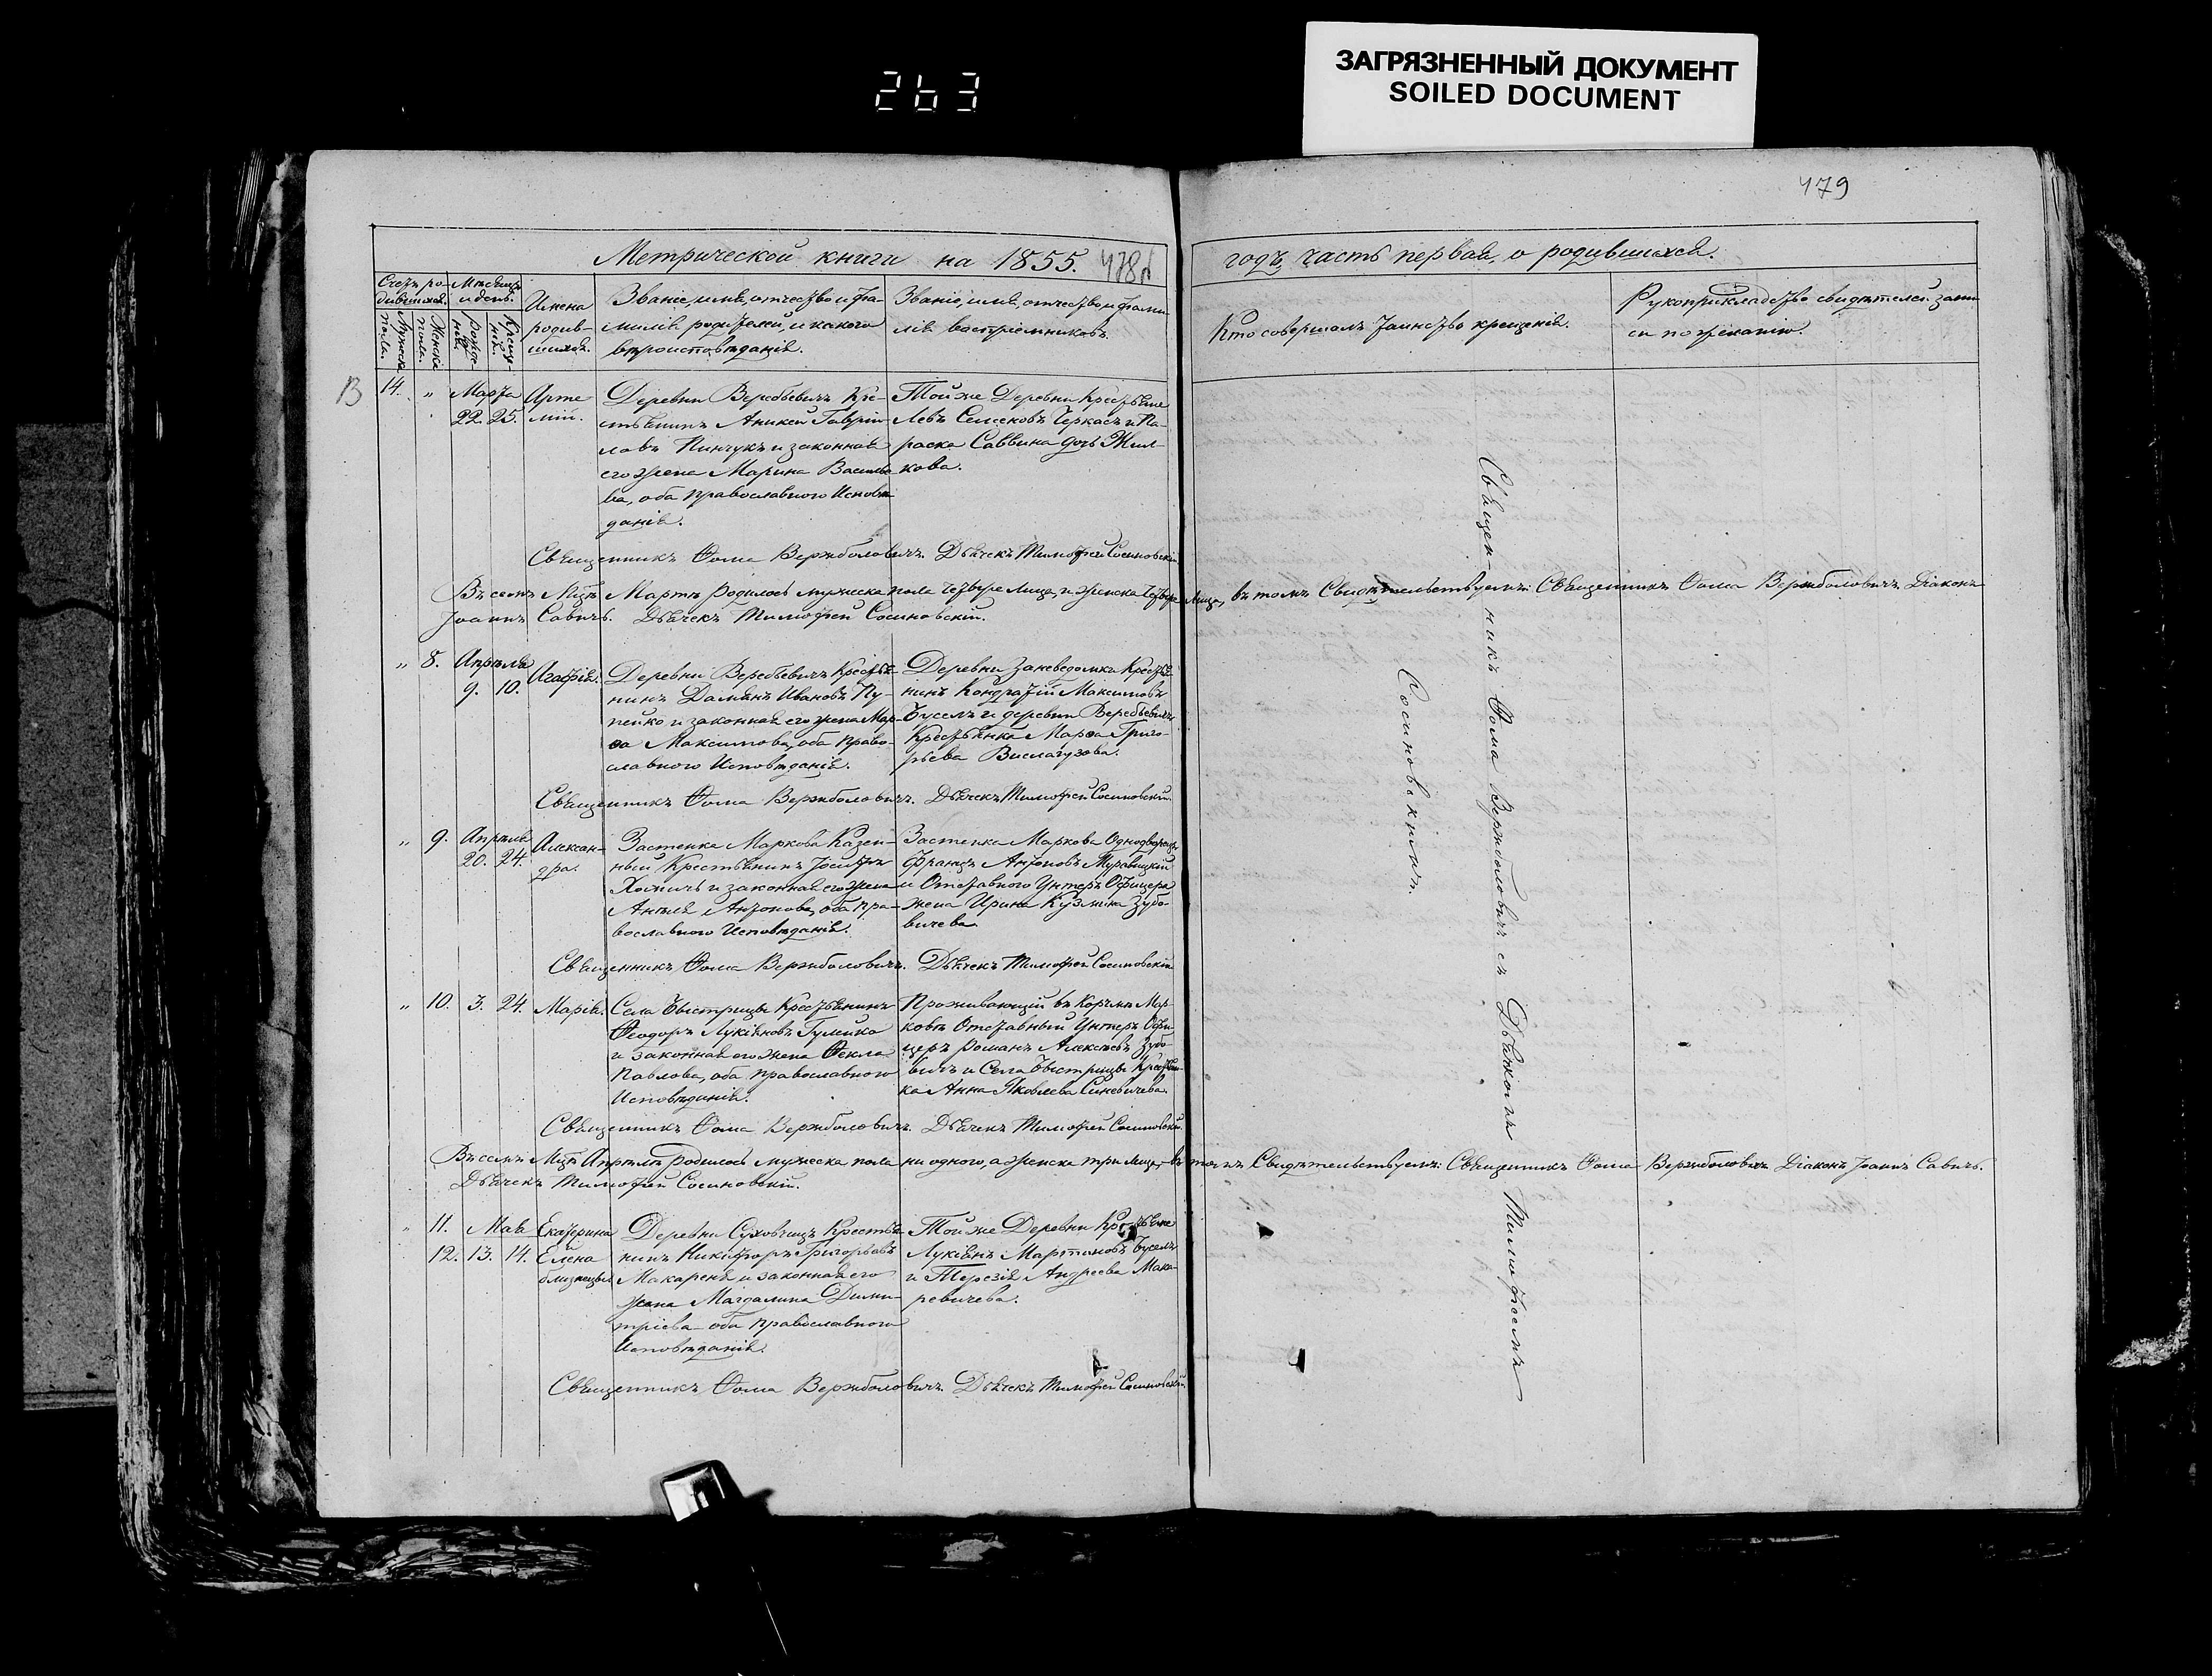 ЗАГРЯЗНЕННЫЙ ДОКУМЕНТ
SOILED DOCUMENT
263
479
Метрической книги на 1855. 478
годъ, часть первая, о родившихся.
Счетъ родившихся.
Мужеска пола.
Женска пола.
Мѣсяцъ и день.
рожденія.
Крещенія.
Имена родившихся.
Званіе, имя, отчество и фамилія родителей, и какого вѣроисповѣданія.
Званіе, имя, отчество и фамилія воспріемниковъ.
Кто совершалъ таинство крещенія.
Рукоприкладство свидѣтелей записи по желанію.
14. „ Марта
22. 25.
Артемій.
Деревни Веребьевичъ Кре-
стьянинъ Аникей Гаврии-
ловъ Пинчукъ и законная
его жена Марина Василье-
ва, оба православного Исповѣ-
данія.
Той же Деревни Крестьяне
Левъ Семеновъ Черкасъ и Па-
раска Саввина дочь Жил-
кова.
Священникъ Ѳома Вержболовичъ. Дьячекъ Тимофей Сосиновскій.
Въ семъ Мцѣ Мартѣ родилось мужеска пола четыре лица, и женска четыре лица, въ томъ Свидѣтельствуемъ: Священникъ Ѳома Вержболовичъ Діаконъ
Іоаннъ Савичъ. Дьячекъ Тимофей Сосиновскій.
„ 8. Апрѣля
9. 10.
Агафія.
Деревни Веребьевичъ Крестья-
нинъ Дамянъ Ивановъ Пу-
пейко и законная его жена Мар-
ѳа Максимова, оба право-
славного Исповѣданія.
Деревни Заневедомка Крестья-
нинъ Кондратій Максимовъ
Буселъ и деревни Веребьевичъ
Крестьянка Марѳа Григо-
рьева Вислагузова.
Священникъ Ѳома Вержболовичъ. Дьячекъ Тимофей Сосиновскій.
„ 9. Апрѣля
20. 24.
Алексан-
дра.
Застенка Маркова Казен-
ный Крестьянинъ Іосифъ
Хомичъ и законная его жена
Анѣля Антонова, оба пра-
вославного Исповѣданія.
Застенка Маркова Однодворецъ
Францъ Антоновъ Муравицкій
и Отставного Унтеръ Офицера
жена Ирина Кузмина Зубо-
вичева.
Священникъ Ѳома Вержболовичъ. Дьячекъ Тимофей Сосиновскій
„ 10. 3. 24. Марія.
Села Быстрицы Крестьянинъ
Ѳеодоръ Лукіяновъ Гумейко
и законная его жена Ѳекла
Павлова, оба православного
Исповѣданія.
Проживающій въ Корчмѣ Мар-
ковѣ Отставный Унтеръ Офи-
церъ Романъ Алексѣевъ Зубо-
вичъ и Села Быстрицы Крестьян-
ка Анна Яковлева Синевичева.
Священникъ Ѳома Вержболовичъ. Дьячекъ Тимофей Сосиновскій.
Въ семъ Мцѣ Апрѣлѣ родилось мужеска пола ни одного, а женска три лица, въ томъ Свидѣтельствуемъ: Священникъ Ѳома Вержболовичъ Діаконъ Іоаннъ Савичъ.
Дьячекъ Тимофей Сосиновскій.
„ 11. Мая Екатерина
12. 13. 14. Елена
близнецы
Деревни Суховчицъ Крестья-
нинъ Никифоръ Григорьевъ
Макареня и законная его
жена Магдалина Дими-
тріева оба православного
Исповѣданія.
Той же Деревни Крестьяне
Лукіянъ Мартиновъ Буселъ
и Терезія Андреева Мака-
ревичева.
Священникъ Ѳома Вержболовичъ. Дьячекъ Тимофей Сосиновскій.
Священникъ Ѳома Вержболовичъ съ Дьячкомъ Тимофеемъ
Сосиновскимъ.